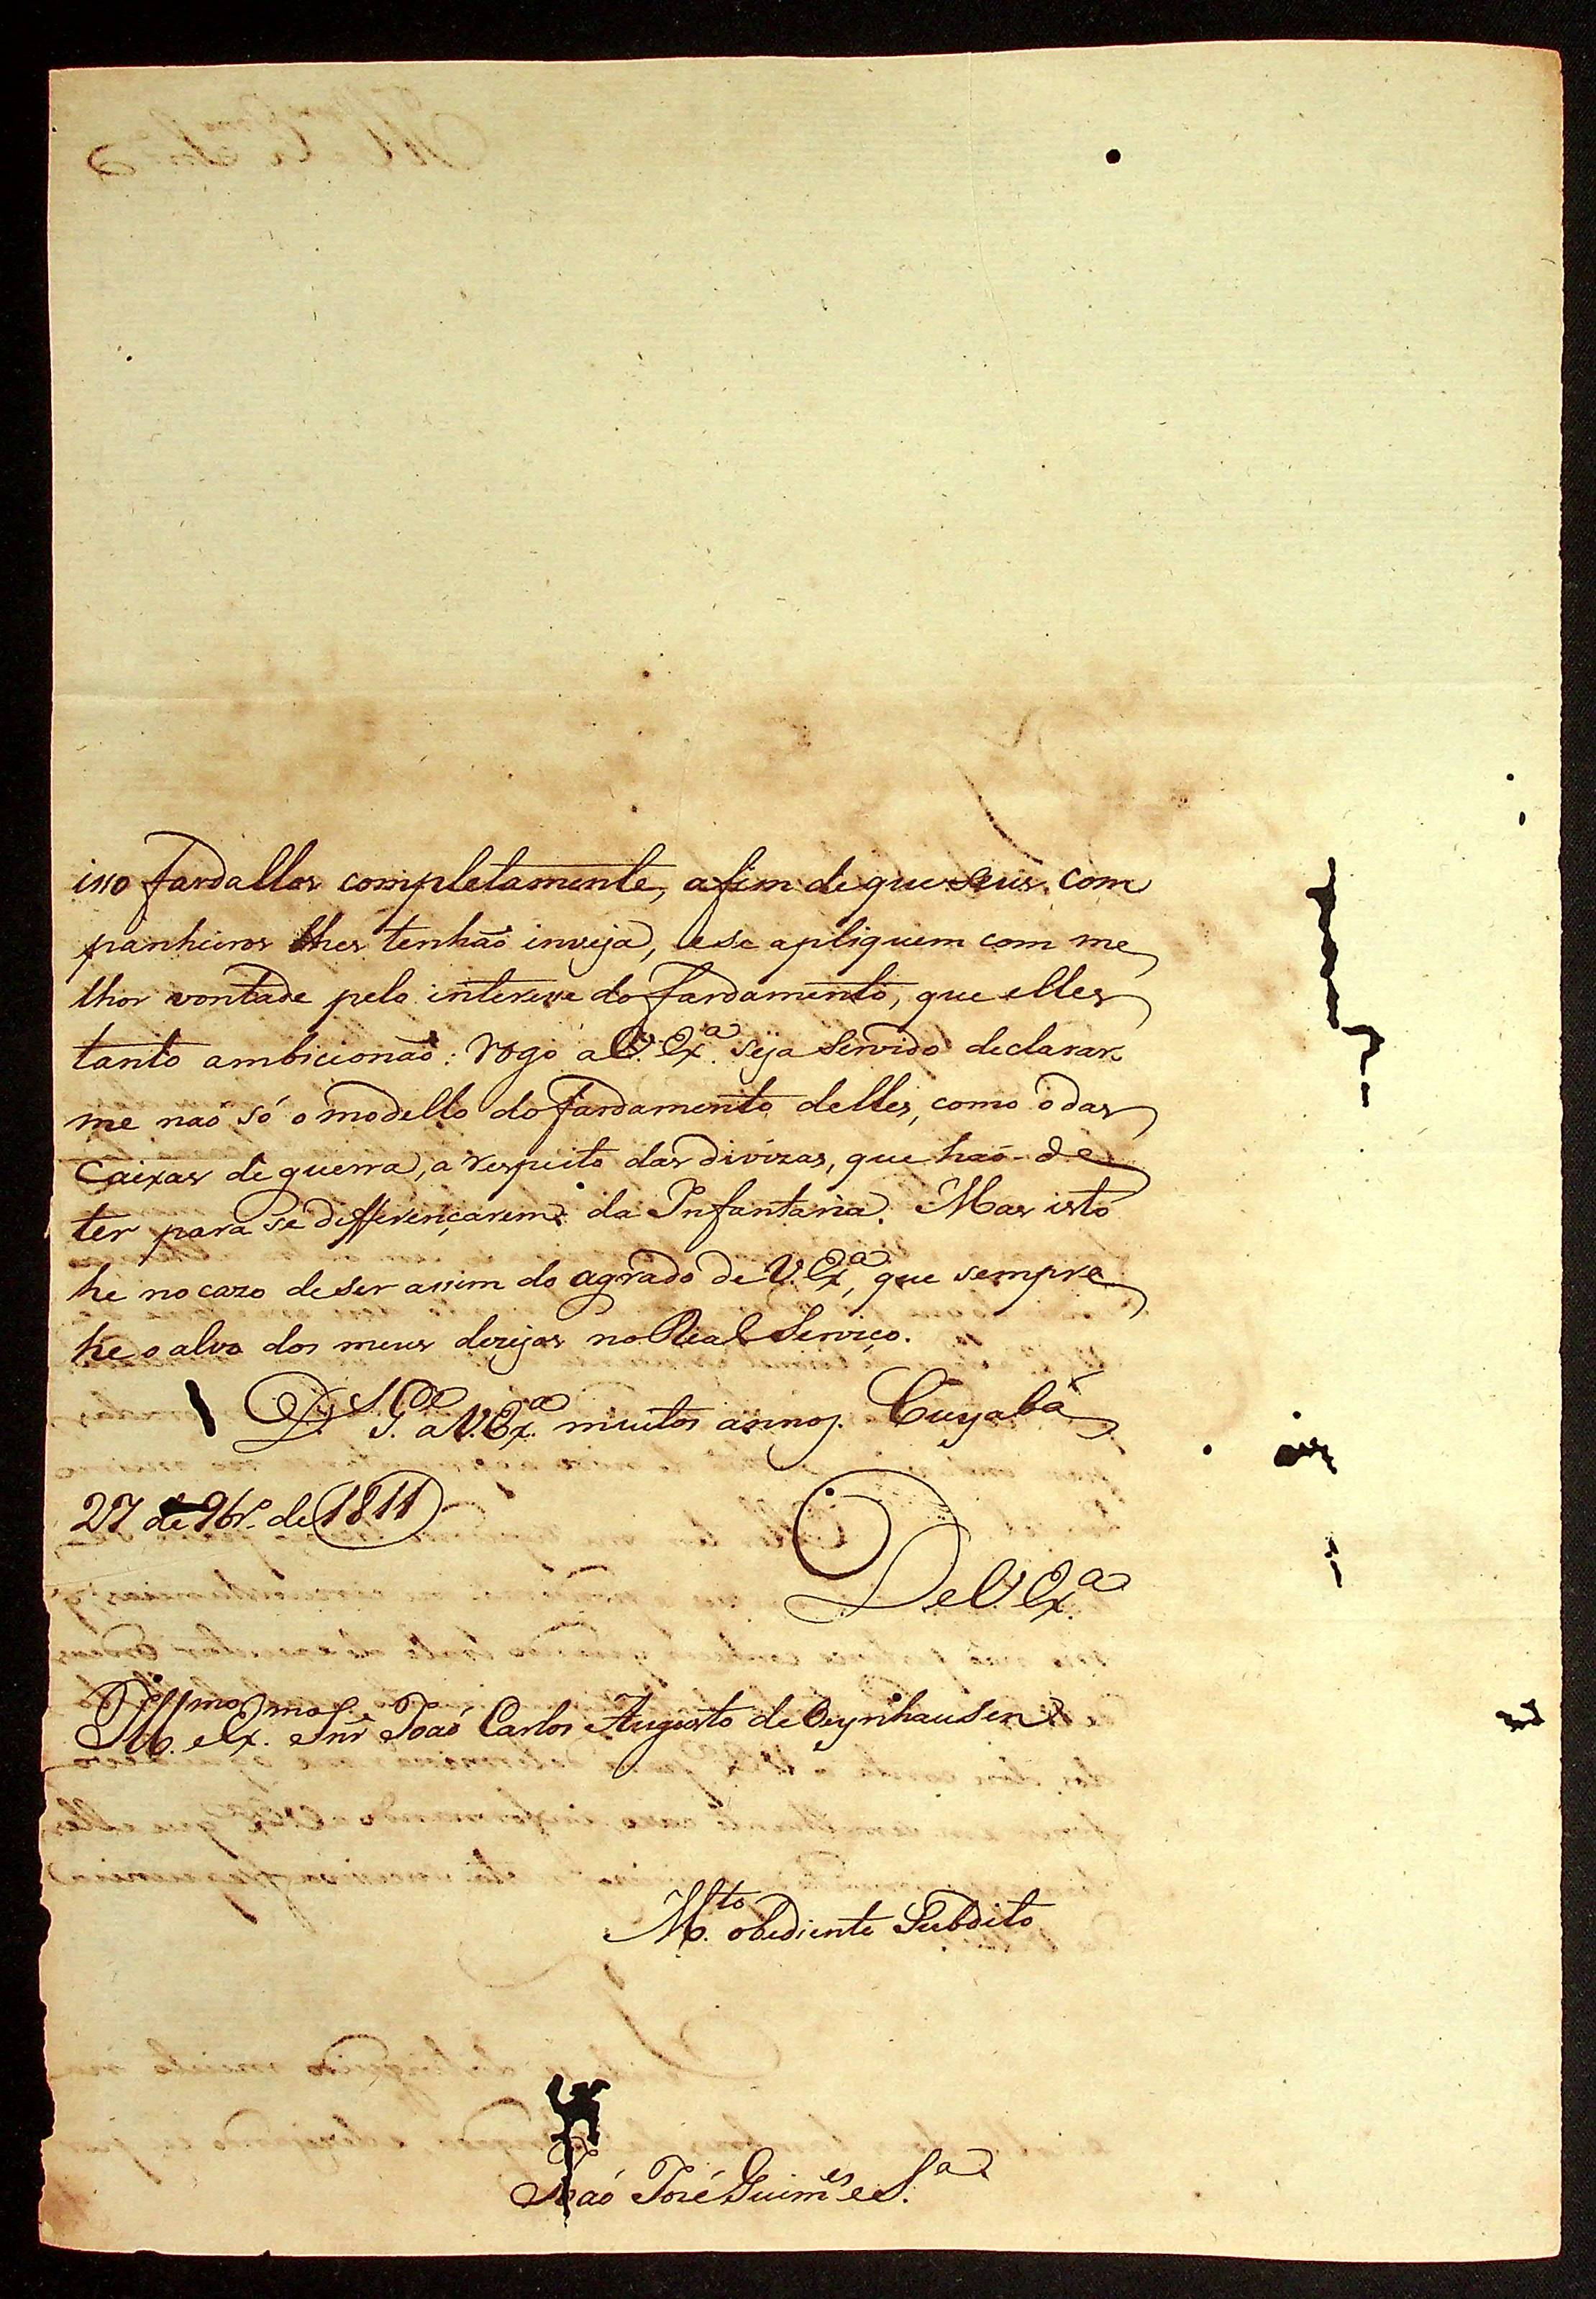 isso fardallos completamente, afim deque seus com
panheiros lhes tenhaõ inveja, ese apliquem com me
lhor vontade pelo interesse do fardamento, que elles
tanto ambicionaõ: rogo a V. Exª. seja servido declarar
me naõ só o modello do fardamento delles, como o das
Caixas de guerra, a respeito das divizas, que haõ-de
ter para se differençarem da Infantaria. Mas isto
he no cazo de ser assim do agrado de V. Exª, que sempre
he o alvo dos meus dezejos no Real Serviço.
D.s G.de a V. Exª. muitos annos. Cuyabá
27 de 9br.º de 1811
De V. Exª.
Ill.mo e Ex.mo Snr. Joaõ Carlos Augusto de Oeynhausen
M.to obediente Subdito
Joaõ José Guim.es e S.ª